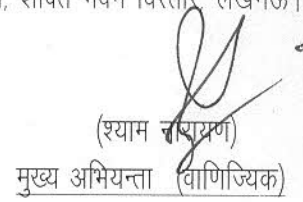 शक्ति भवन विस्तार, लखनऊ।
(श्याम नारायण)
मुख्य अभियन्ता (वाणिज्यिक)